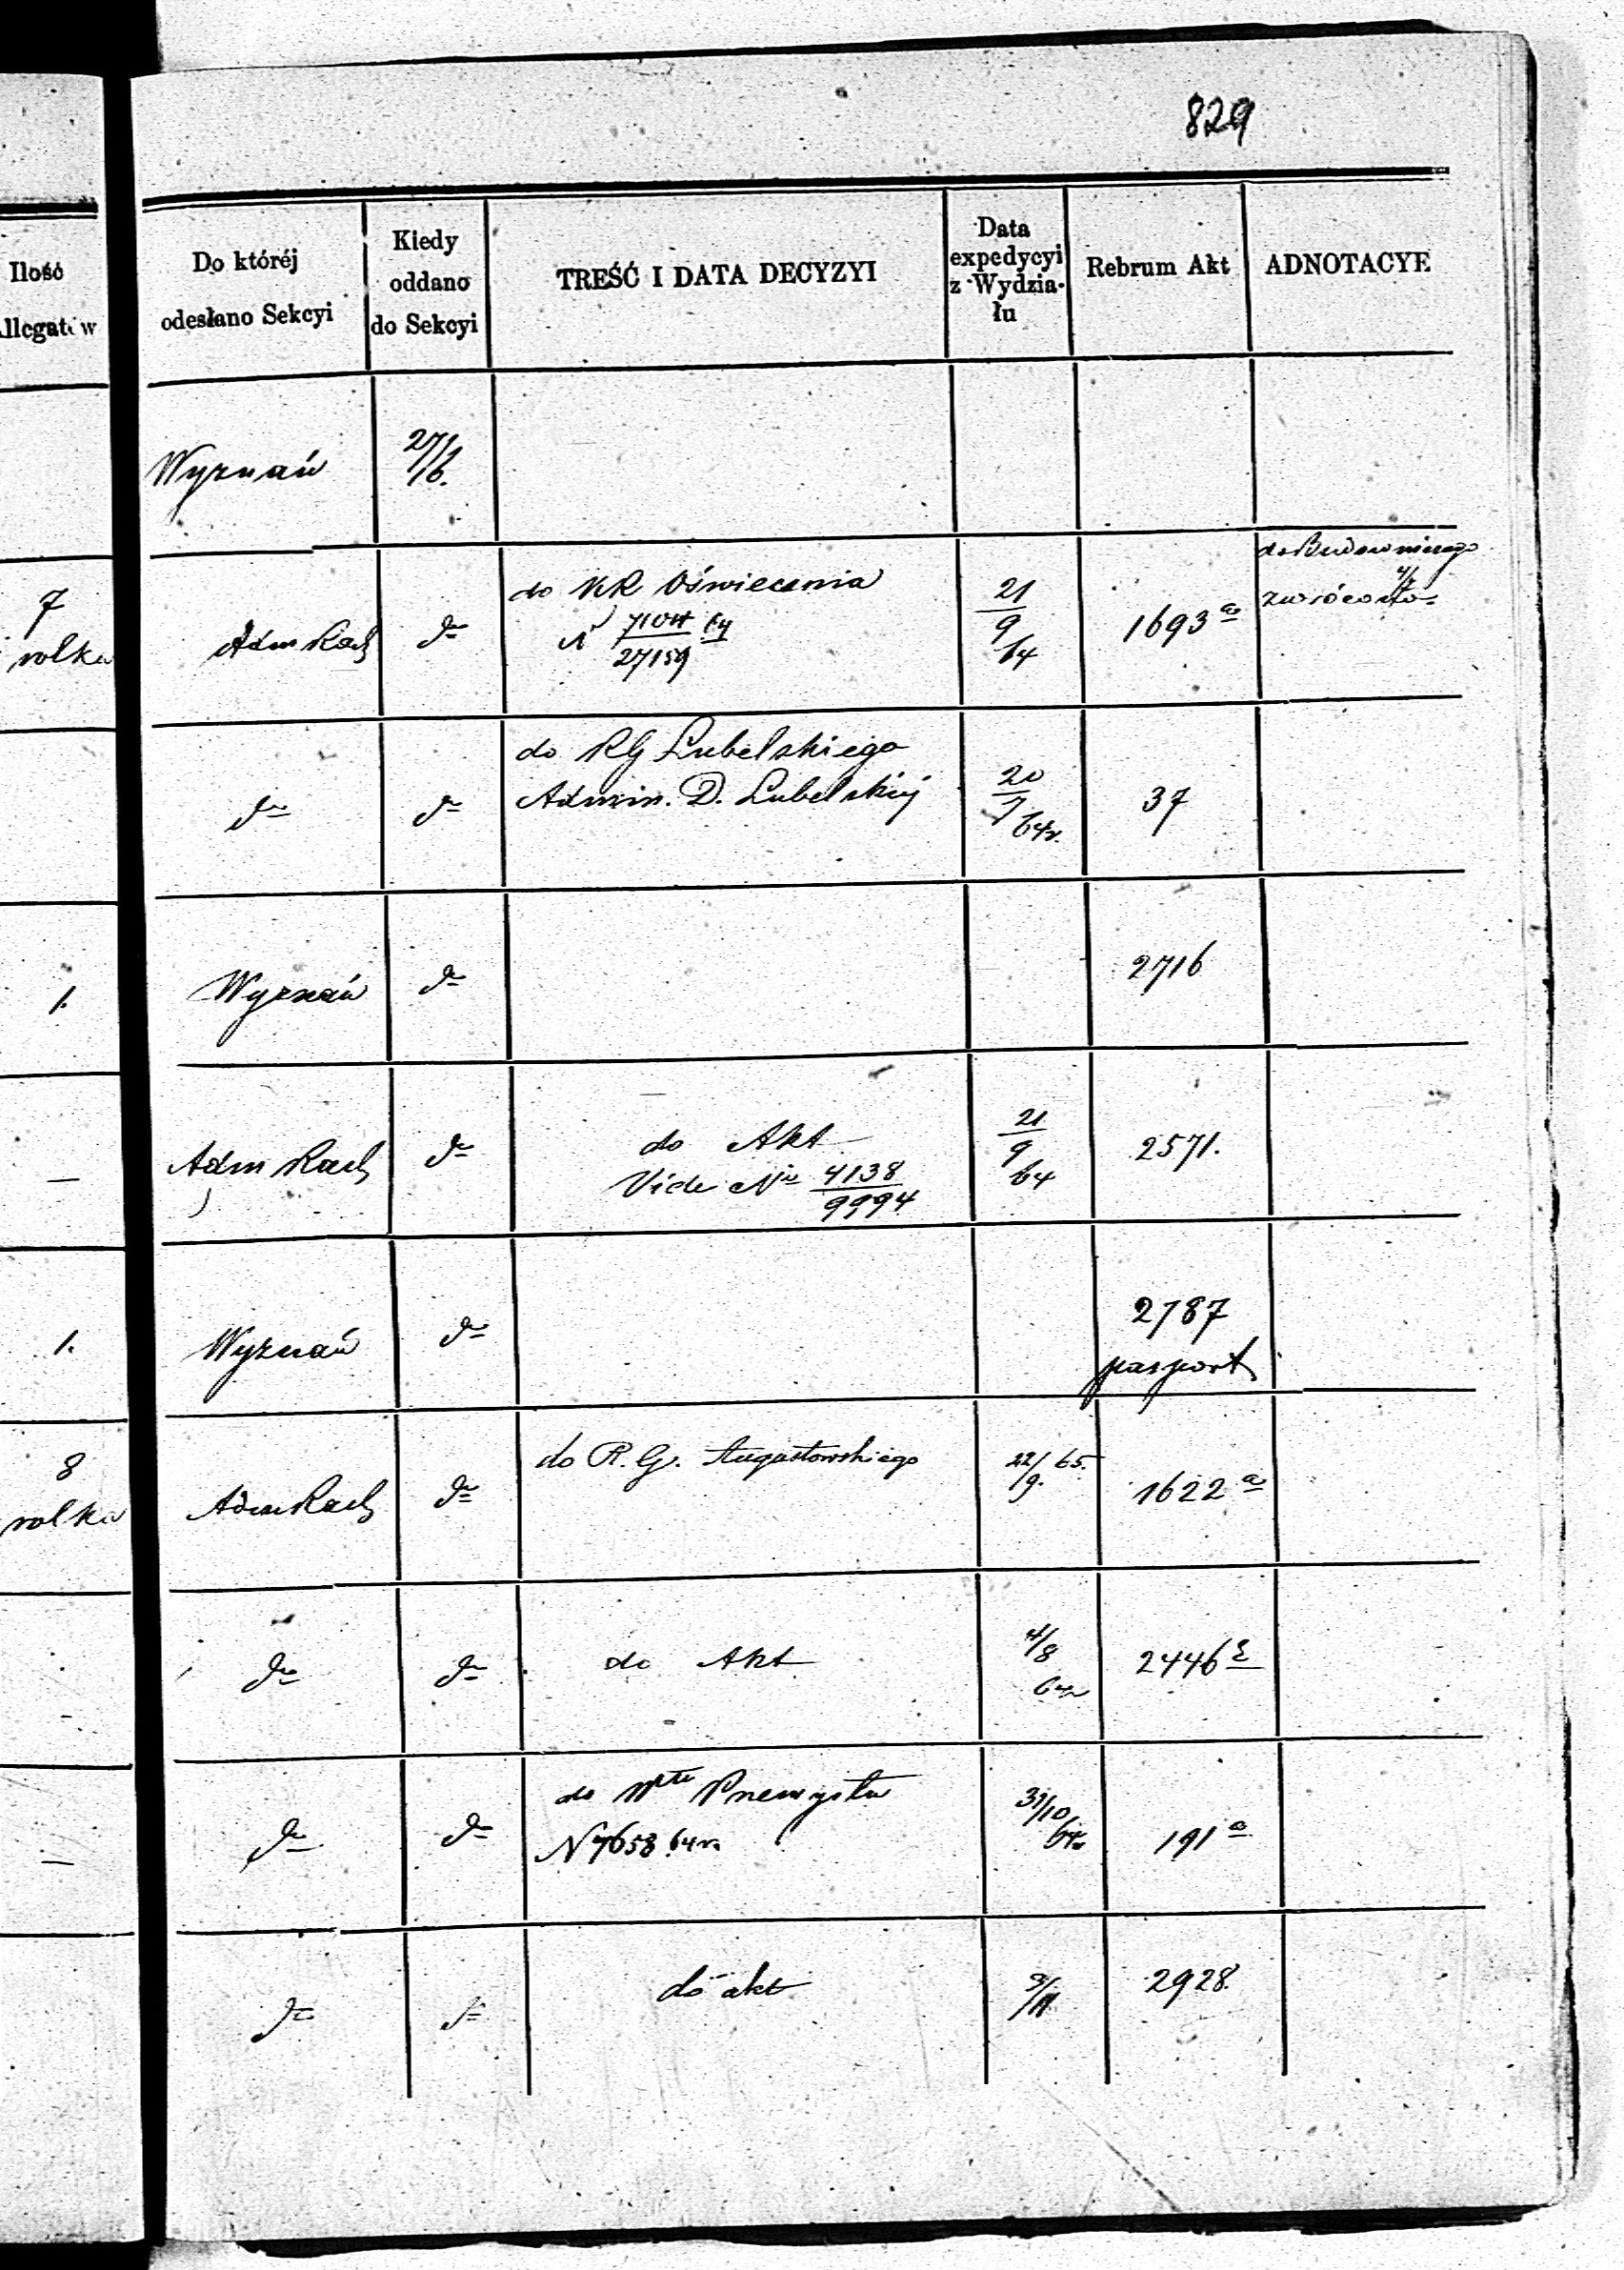 829
Ilość
Allegatów
Do któréj
odesłano Sekcyi
Kiedy
oddano
do Sekcyi
TREŚĆ I DATA DECYZYI
Data
expedycyi
z Wydzia-
łu
Rebrum Akt
ADNOTACYE
Wyznań
27/6.
7
rolka
Adm Rach
do
do KR Oświecenia
N 7104/27159 64
21/9 64
1693 a
do Budowniczego
4/7
zwrócono
do
do
do RG Lubelskiego
Admin. D. Lubelskiej
20/7 64r.
37
1.
Wyznań
do
2716
—
Adm Rach
do
do Akt
Vide No 4138/9994
21/9 64
2571.
1.
Wyznań
do
2787
pasport
8
rolka
Adm Rach
do
do R. G. Augustowskiego
22/9. 65.
1622 a
do
do
do Akt
4/8
64r
2446
—
do
do
do Wtu Przemysłu
N 7658 64r.
31/10 64r
191 a
do
do
do akt
3/11
2928.